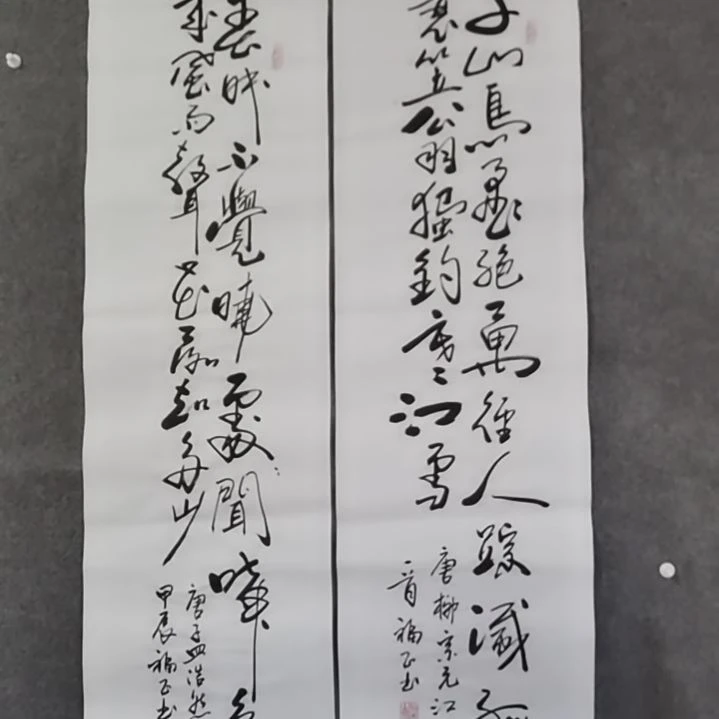 千山鳥飛絕萬徑人蹤滅孤
蓑笠翁獨釣寒江雪
唐柳宗元江
首福正书
春眠不覺曉處處聞啼鳥
來風雨聲花落知多少
唐孟浩然
甲辰福正书